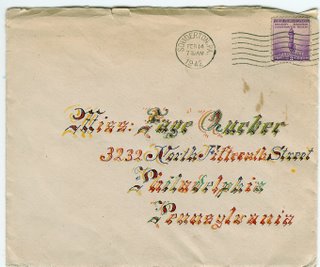 SOUDERTON, PA.
FEB 14
1942
Miss. Faye Queber
3232 North Fifteenth Street
Philadelphia
Pennsylvania